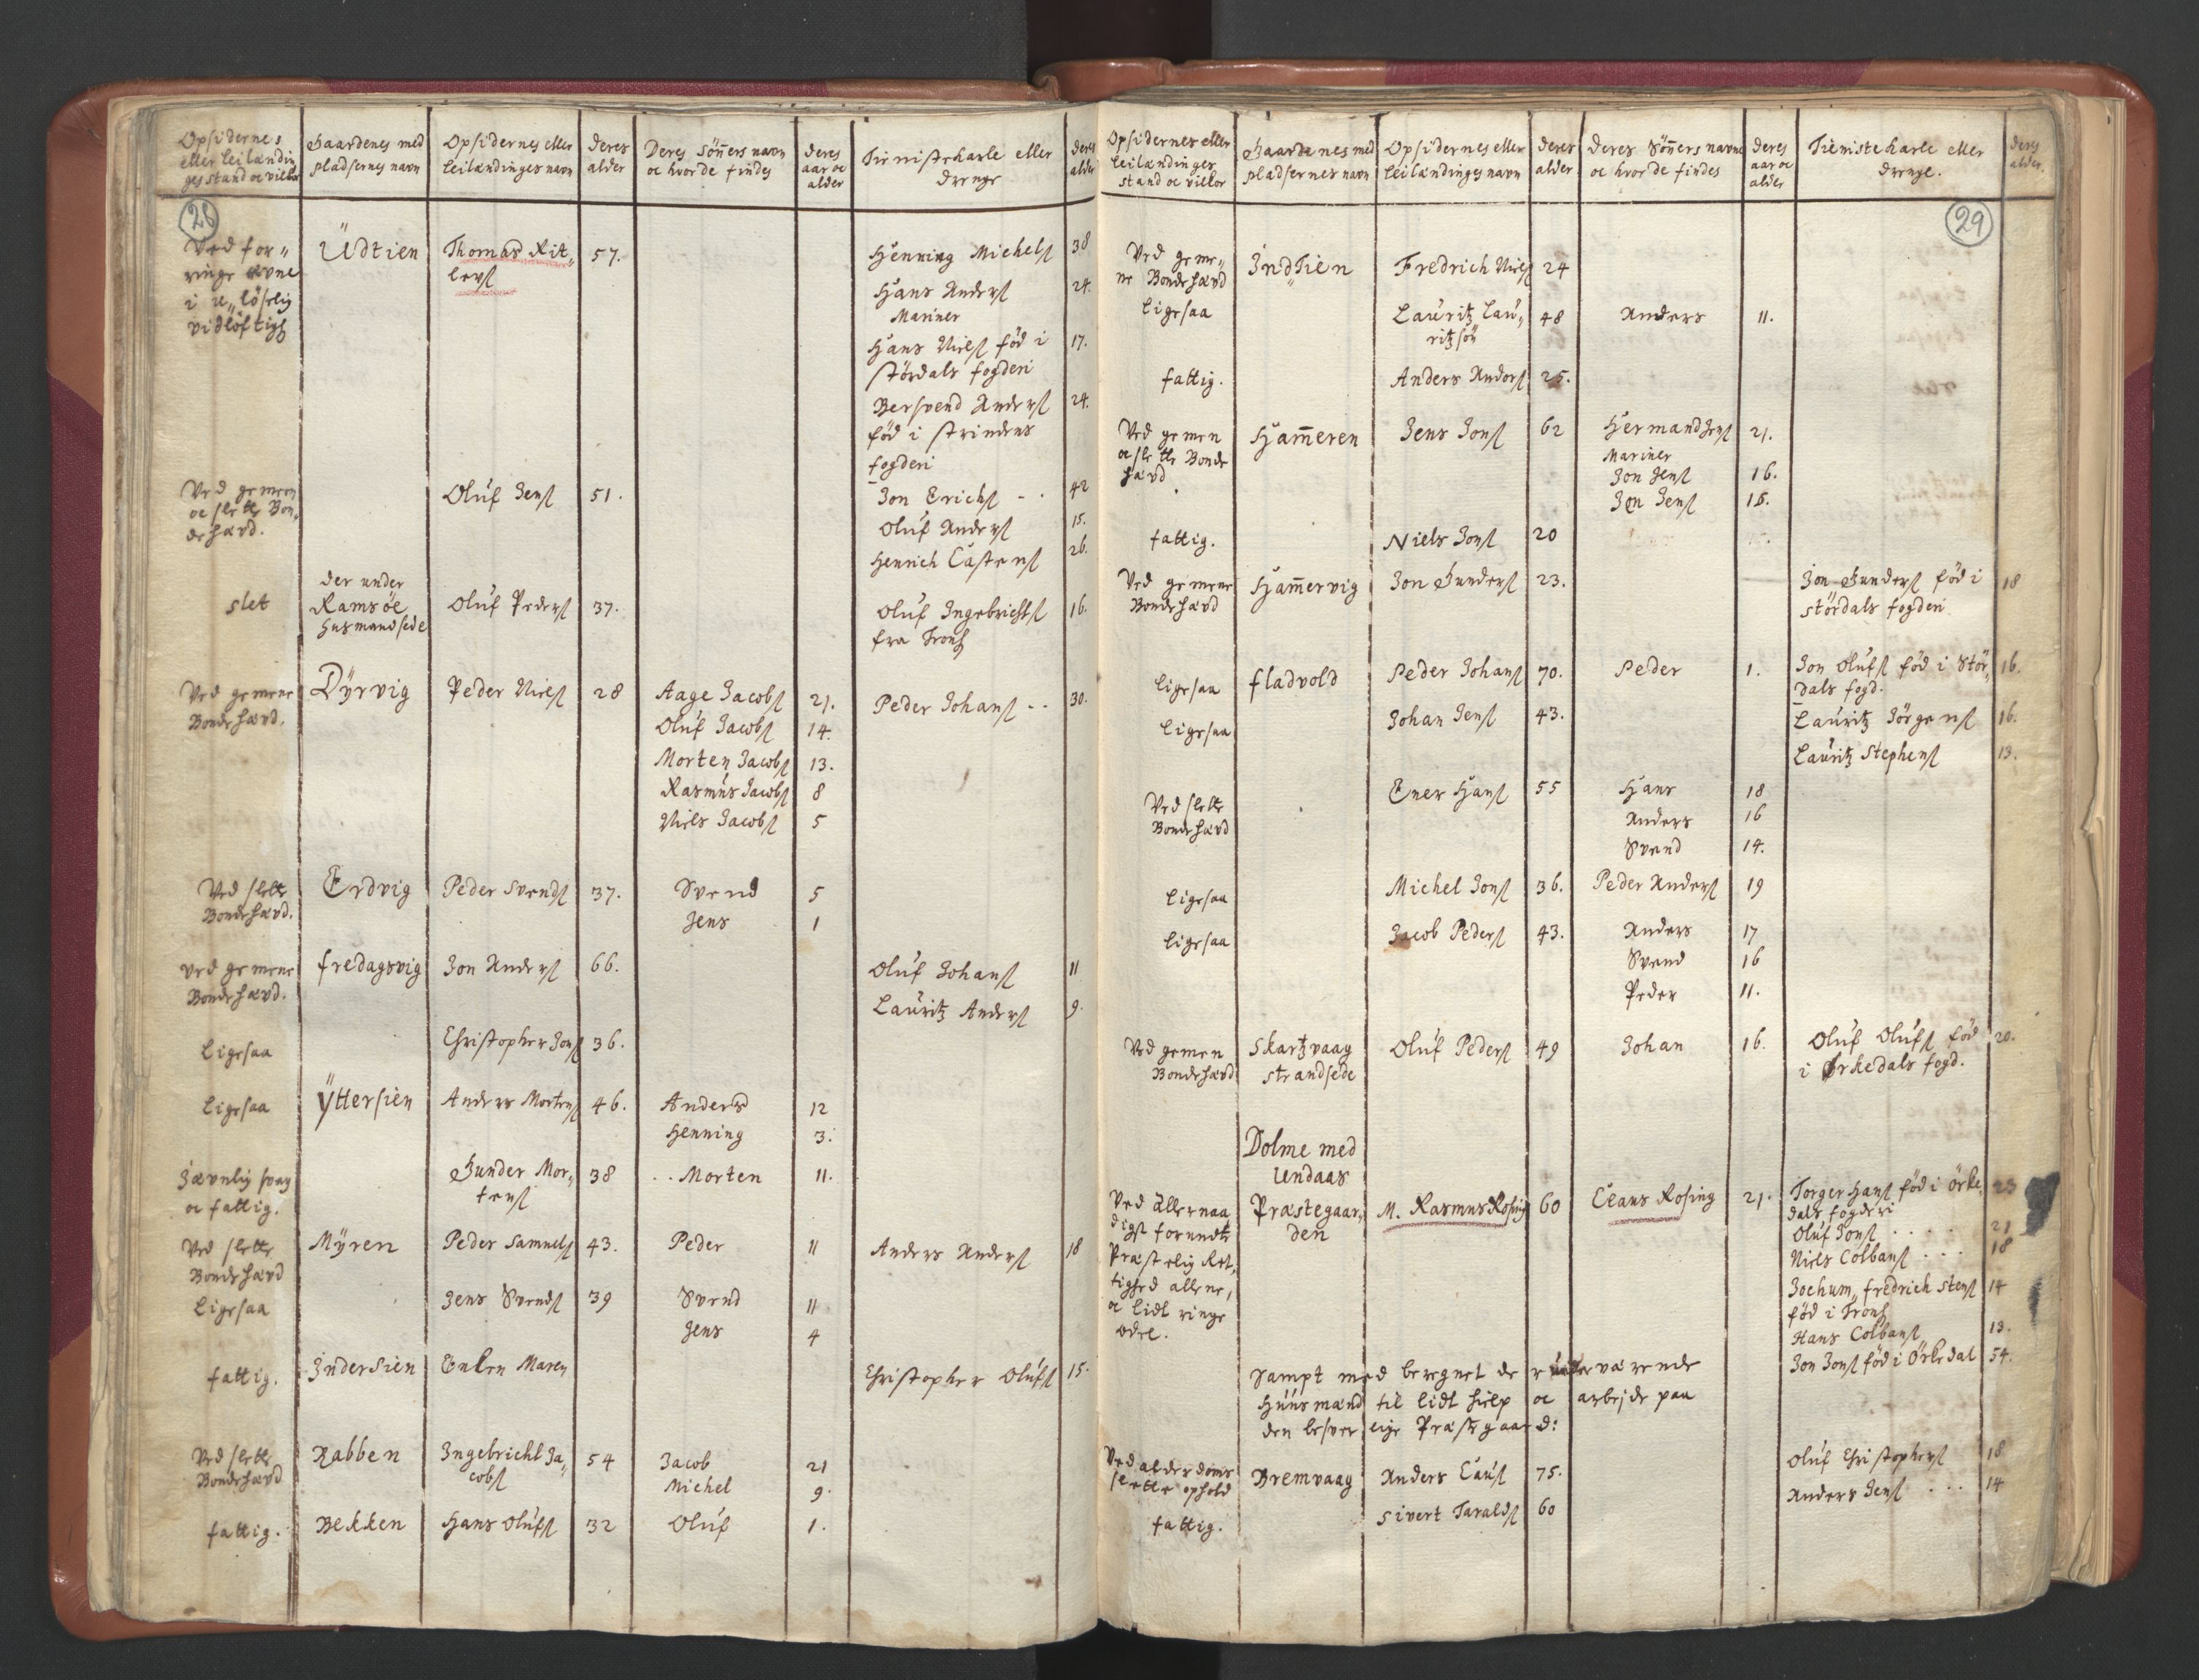 Opsidernes eller leilændinges stand oc vilkor
Gaardenes med pladsernes navn
Opsidernes eller leilændinges navn
deres alder
Deres Sönners navn oc hvor de findes
deres aar oc alder
Tienistekarle eller drenge
deres alder
28
Ved for„ ringe evne i vidlöftigh
Üdtien Thomas Rit„ levs. 57. Henning Michels. 38
Hans Anders. 24.
Mariner
Hans Niels. föd i 17.
stördals fogderi
Bersvend Anders. 24.
föd i strindens
fogderi
Ved gemeen oc slette Bon„ dehævd. Oluf Jens. 51. Jon Erichs. - . 42
Oluf Anders. 15.
Henrich Castens. 26.
slet der under Ramsöe husmandsede Oluf Peders. 37. Oluf Ingebrichts. 16.
fra Tronh
Ved gemene Bondehævd. Dÿrvig Peder Niels. 28 Aage Jacobs. 21. Peder Johans. - - 30.
Oluf Jacobs. 14.
Morten Jacobs. 13.
Rasmus Jacobs. 8
Niels Jacobs. 5
Ved slette Bondehævd. Erdvig Peder Svends. 37. Svend 5
Jens 1
Ved gemene Bondehævd. fredagsvig Jon Anders. 66. Oluf Johans. 11
Lauritz Anders. 9.
Ligesaa Christopher Jons. 36.
Ligesaa Ÿttersien Anders Mortens. 46. Anders 12
Henning 3.
Jævnlig svag oc fattig. Gunder Mor„ tens. 38 . . Morten 11.
Ved slette Bondehævd Mÿren Peder Samuels. 43. Peder 11 Anders Anders. 18
Ligesaa Jens Svends. 39 Svend 11
Jens 4
fattig. Indersien Enken Maren Christopher Olufs. 15.
Ved slette Bondehævd Rabben Ingebricht Ja„ cobs. 54 Jacob 21
Michel 9.
fattig. Bekken Hans Olufs. 32 Oluf 1.
Opsidernes eller leilændinges stand oc vilkor
Gaardenes med pladsernes navn
Opsidernes eller leilændinges navn
deres alder
deres Sönners navne oc hvor de findes
deres aar oc alder
Tienistekarle eller drenge.
deres alder.
29
Ved geme„ ne Bondehævd Indtien Fredrich Niels. 24
Ligesaa Lauritz Lau„ ritzsön 48 Anders 11.
fattig. Anders Anders. 25.
Ved gemen oc slette Bonde hævd. Ham̄eren Jens Jons. 62 Hermand Jens. 21.
Mariner
Jon Jens. 16.
Jon Jens. 15.
fattig. Niels Jons. 20
Ved gemene Bondehævd Ham̄ervig Jon Gunders. 23. Jon Gunders. föd i 18
stördals fogderi
Ligesaa fladvold Peder Johans. 70. Peder 1. Jon Olufs. föd i Stör„ 16.
dals fogd.
Ligesaa Johan Jens. 43. Lauritz Jörgens. 16.
Lauritz Stephens. 13.
Ved slette Bondehævd Ener Hans. 55 Hans 18
Anders 16
Svend 14.
Ligesaa Michel Jons. 36. Peder Anders. 19
Ligesaa Jacob Peders. 43. Anders 17
Svend 16
Peder 11.
Ved gemen Bondehævd Skartzvaag strandsede Oluf Peders. 49 Johan 16. Oluf Olufs. föd 20.
i Ørkedals fogd.
Dolme med
Undaas
Ved allernaa digst forundte Præstelig Ret„ tighed allene, oc lidt ringe odel. Præstegaar„ den M. Rasmus Rosing 60 Claus Rosing 21. Torger Hans. föd i örke„ 23
dals fogderi
Oluf Jons. . . . . 21
Niels Colbans. . . . 18
Jochum„ fredrich Stens. 14
föd i Tronh
Hans Colbans. 13.
Jon Jons. föd i Örkedal 54.
Sampt med beregnet de værende
Huusmænd til lidt hielp oc arbejde paa
den besverlige Præstgaard:
Ved alderdoms slette ophold Bremvaag Anders Caus. 75. Oluf Christophers. 18
Anders Jens. . . . 14
fattig. Sivert Taralds. 60